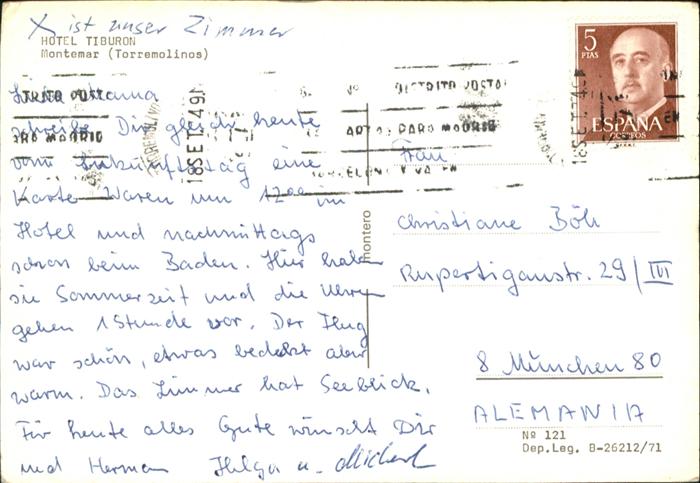 X ist unser Zimmer
HOTEL TIBURON
Montemar (Torremolinos)
Liebe
schreibe Dir gleich heute
vom Ankunftstag eine
Karte Waren um 12⁰⁰ im
Hotel und nachmittags
schon beim Baden. Hier haben
sie Sommerzeit und die Uhren
gehen 1 Stunde vor. Der Flug
war schön, etwas bedeckt aber
warm. Das Zimmer hat Seeblick.
Für heute alles Gute wünscht Dir
und Herman Helga u. Michael
montero
5
PTAS
ESPAÑA
CORREOS
DISTRITO POSTAL
PARA MADRID
18 SEP
Frau
Christiane Böh
Rupertigaustr. 29/III
8 München 80
ALEMANIA
Nº 121
Dep.Leg. B-26212/71